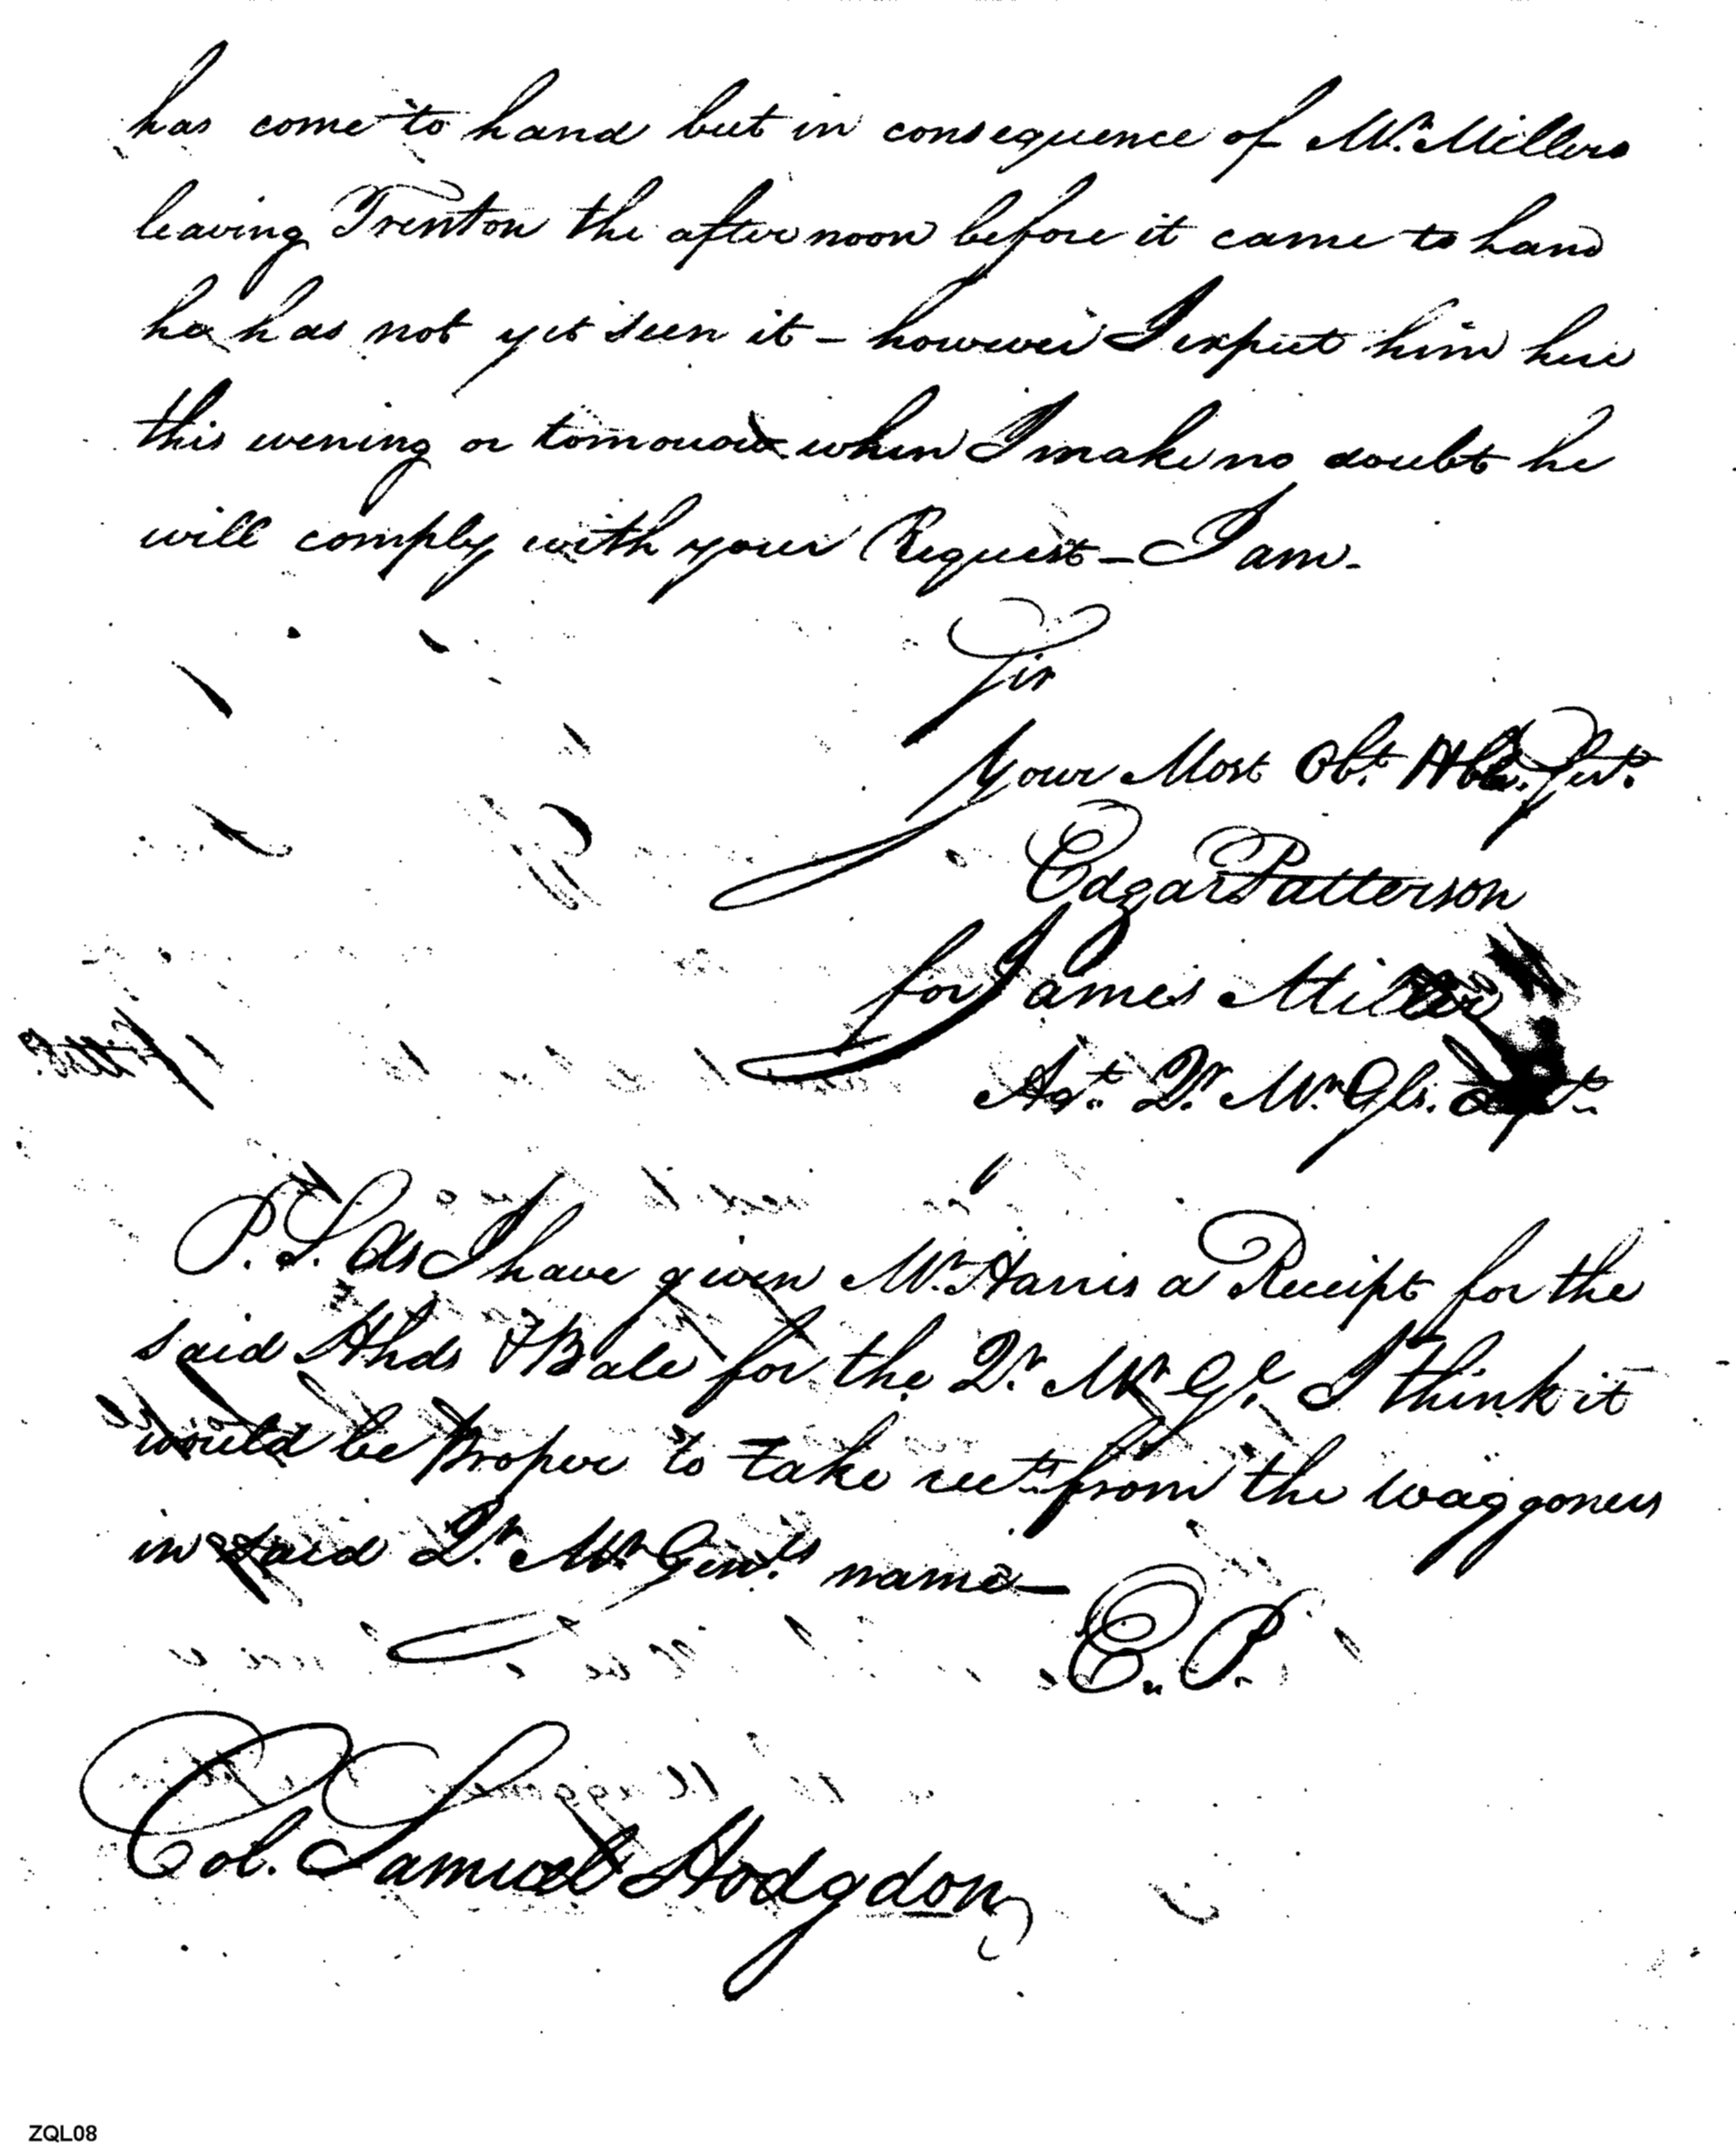 has come to hand but in consequence of Mr. Millers
leaving Trenton the afternoon before it came to hand
he has not yet seen it - however I expect him here
this evening or tomorrow when I make no doubt he
will comply with your Request - I am -
Sir
Your Most Obt. Hble. Servt.
Edgar Patterson
for James Miller
Ast. Qr. Mr. Gl.
P.S. As I have given Mr. Harris a Receipt for the
said Hhds & Bale for the Qr. Mr. Gl. I think it
would be proper to take rects. from the Waggoners
in said Qr. Mr. Genls. name —
E. P.
Col. Samuel Hodgdon
ZQL08